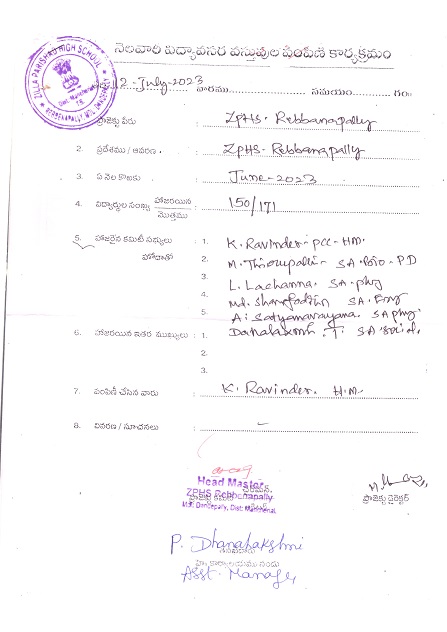 నెలవారి విద్యావసర వస్తువుల పంపిణి కార్యక్రమం
ZILLA PARISHAD HIGH SCHOOL
12-July-2023 వారము.................... సమయం............ గం॥
ప్రాజెక్టు పేరు : ZPHS. Rebbanapally
2. ప్రదేశము / ఆవరణ : ZPHS- Rebbanapally
3. ఏ నెల కొఱకు : June-2023
4. విద్యార్థుల సంఖ్య హాజరయిన / మొత్తము : 150/171
5. హాజరైన కమిటీ సభ్యులు : 1. K. Ravinder- PCC-HM.
హోదాతో 2. M. Thirupathi- SA. Bio-PD
3. L. Lachanna. SA-phy
4. Md. SA. Eng
5. A. Satyanarayana. SA phy.
6. హాజరయిన ఇతర ముఖ్యులు : 1. Danalaxmi. T. SA social.
2.
3.
7. పంపిణీ చేసిన వారు : K. Ravinder. H.M
8. వివరణ / సూచనలు : –
Head Master
ZPHS Rebbenapally
Mdl. Dandepally, Dist: Mancherial
ప్రాజెక్టు డైరెక్టర్
P. Dhanalakshmi
హై కార్యాలయము నందు
Asst. Manager